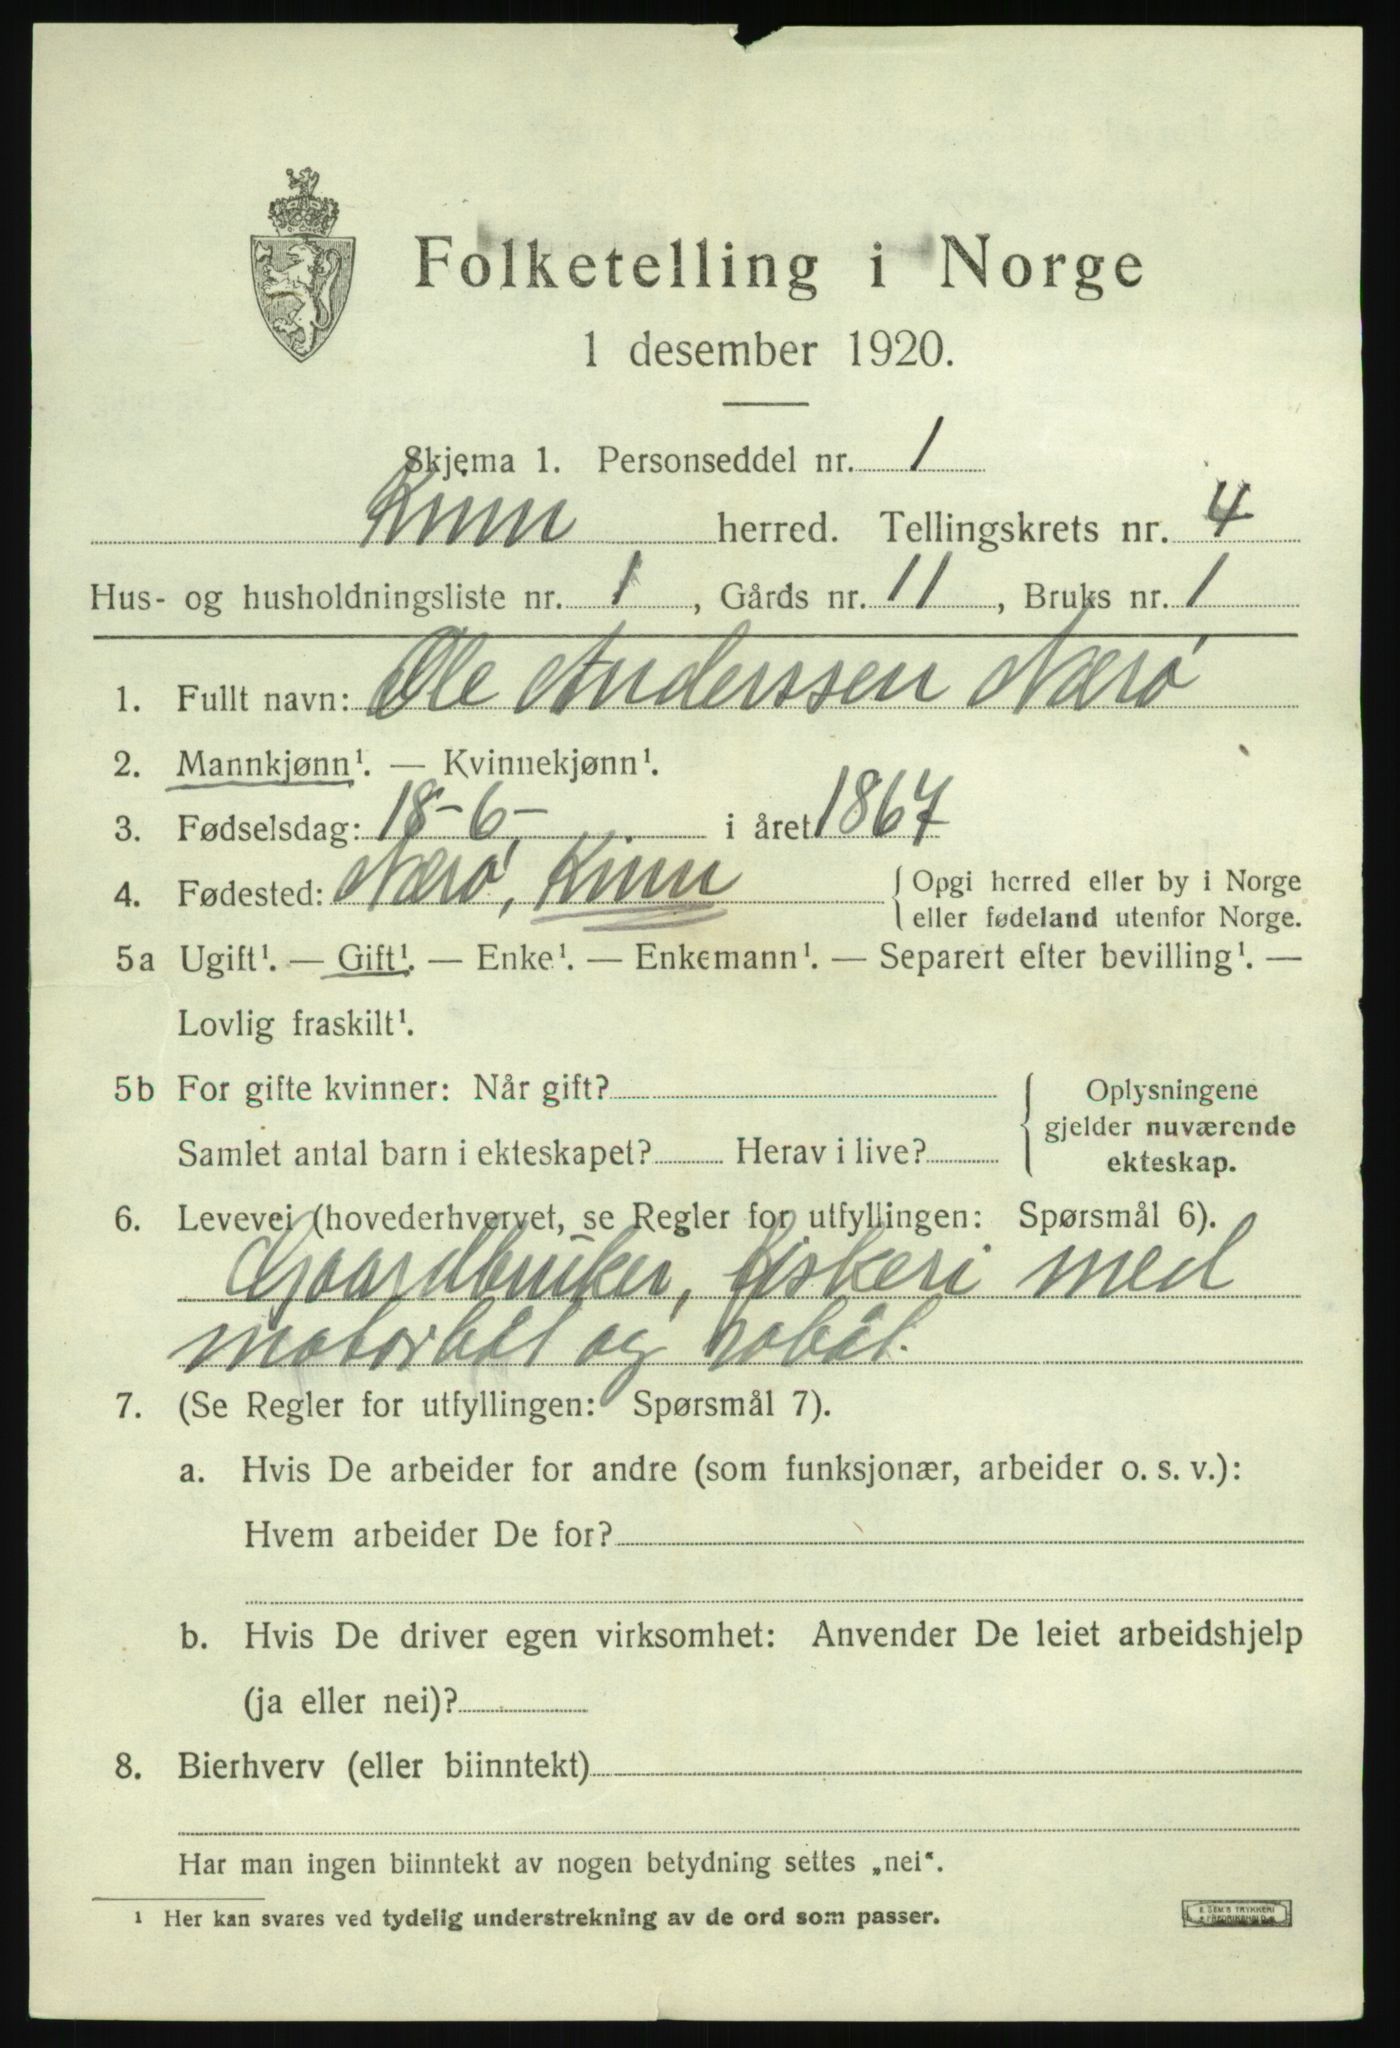 Folketelling i Norge
1 desember 1920.
Skjema 1. Personseddel nr. 1
Kinn herred. Tellingskrets nr. 4
Hus- og husholdningsliste nr. 1, Gårds nr. 11, Bruks nr. 1
1. Fullt navn: Ole Anderssen Nærø
2. Mannkjønn¹. — Kvinnekjønn¹.
3. Fødselsdag: 18-6- i året 1867
4. Fødested: Nærø, Kinn { Opgi herred eller by i Norge
eller fødeland utenfor Norge.
5a Ugift¹. — Gift¹. — Enke¹. — Enkemann¹. — Separert efter bevilling¹. —
Lovlig fraskilt¹.
5b For gifte kvinner: Når gift? { Oplysningene
gjelder nuværende
ekteskap.
Samlet antal barn i ekteskapet? Herav i live?
6. Levevei (hovederhvervet, se Regler for utfyllingen: Spørsmål 6).
Gaardbruker, fiskeri med
motorbåt og robåt.
7. (Se Regler for utfyllingen: Spørsmål 7).
a. Hvis De arbeider for andre (som funksjonær, arbeider o. s. v.):
Hvem arbeider De for?
b. Hvis De driver egen virksomhet: Anvender De leiet arbeidshjelp
(ja eller nei)?
8. Bierhverv (eller biinntekt)
Har man ingen biinntekt av nogen betydning settes „nei“.
¹ Her kan svares ved tydelig understrekning av de ord som passer.
E. SEM'S TRYKKERI
FREDRIKSHALD